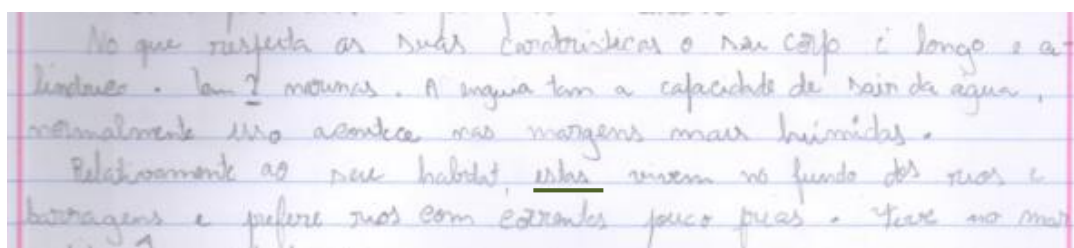 No que respeita as suas caratristicas o seu corpo é longo e ci-
lindrico. Tem 2 narinas. A enguia tem a capacidade de sair da água,
normalmente isso acontece nas margens mais húmidas.
Relativamente ao seu habitat, estas vivem no fundo dos rios e
barragens e prefere rios com correntes pouco frias. Vive no mar